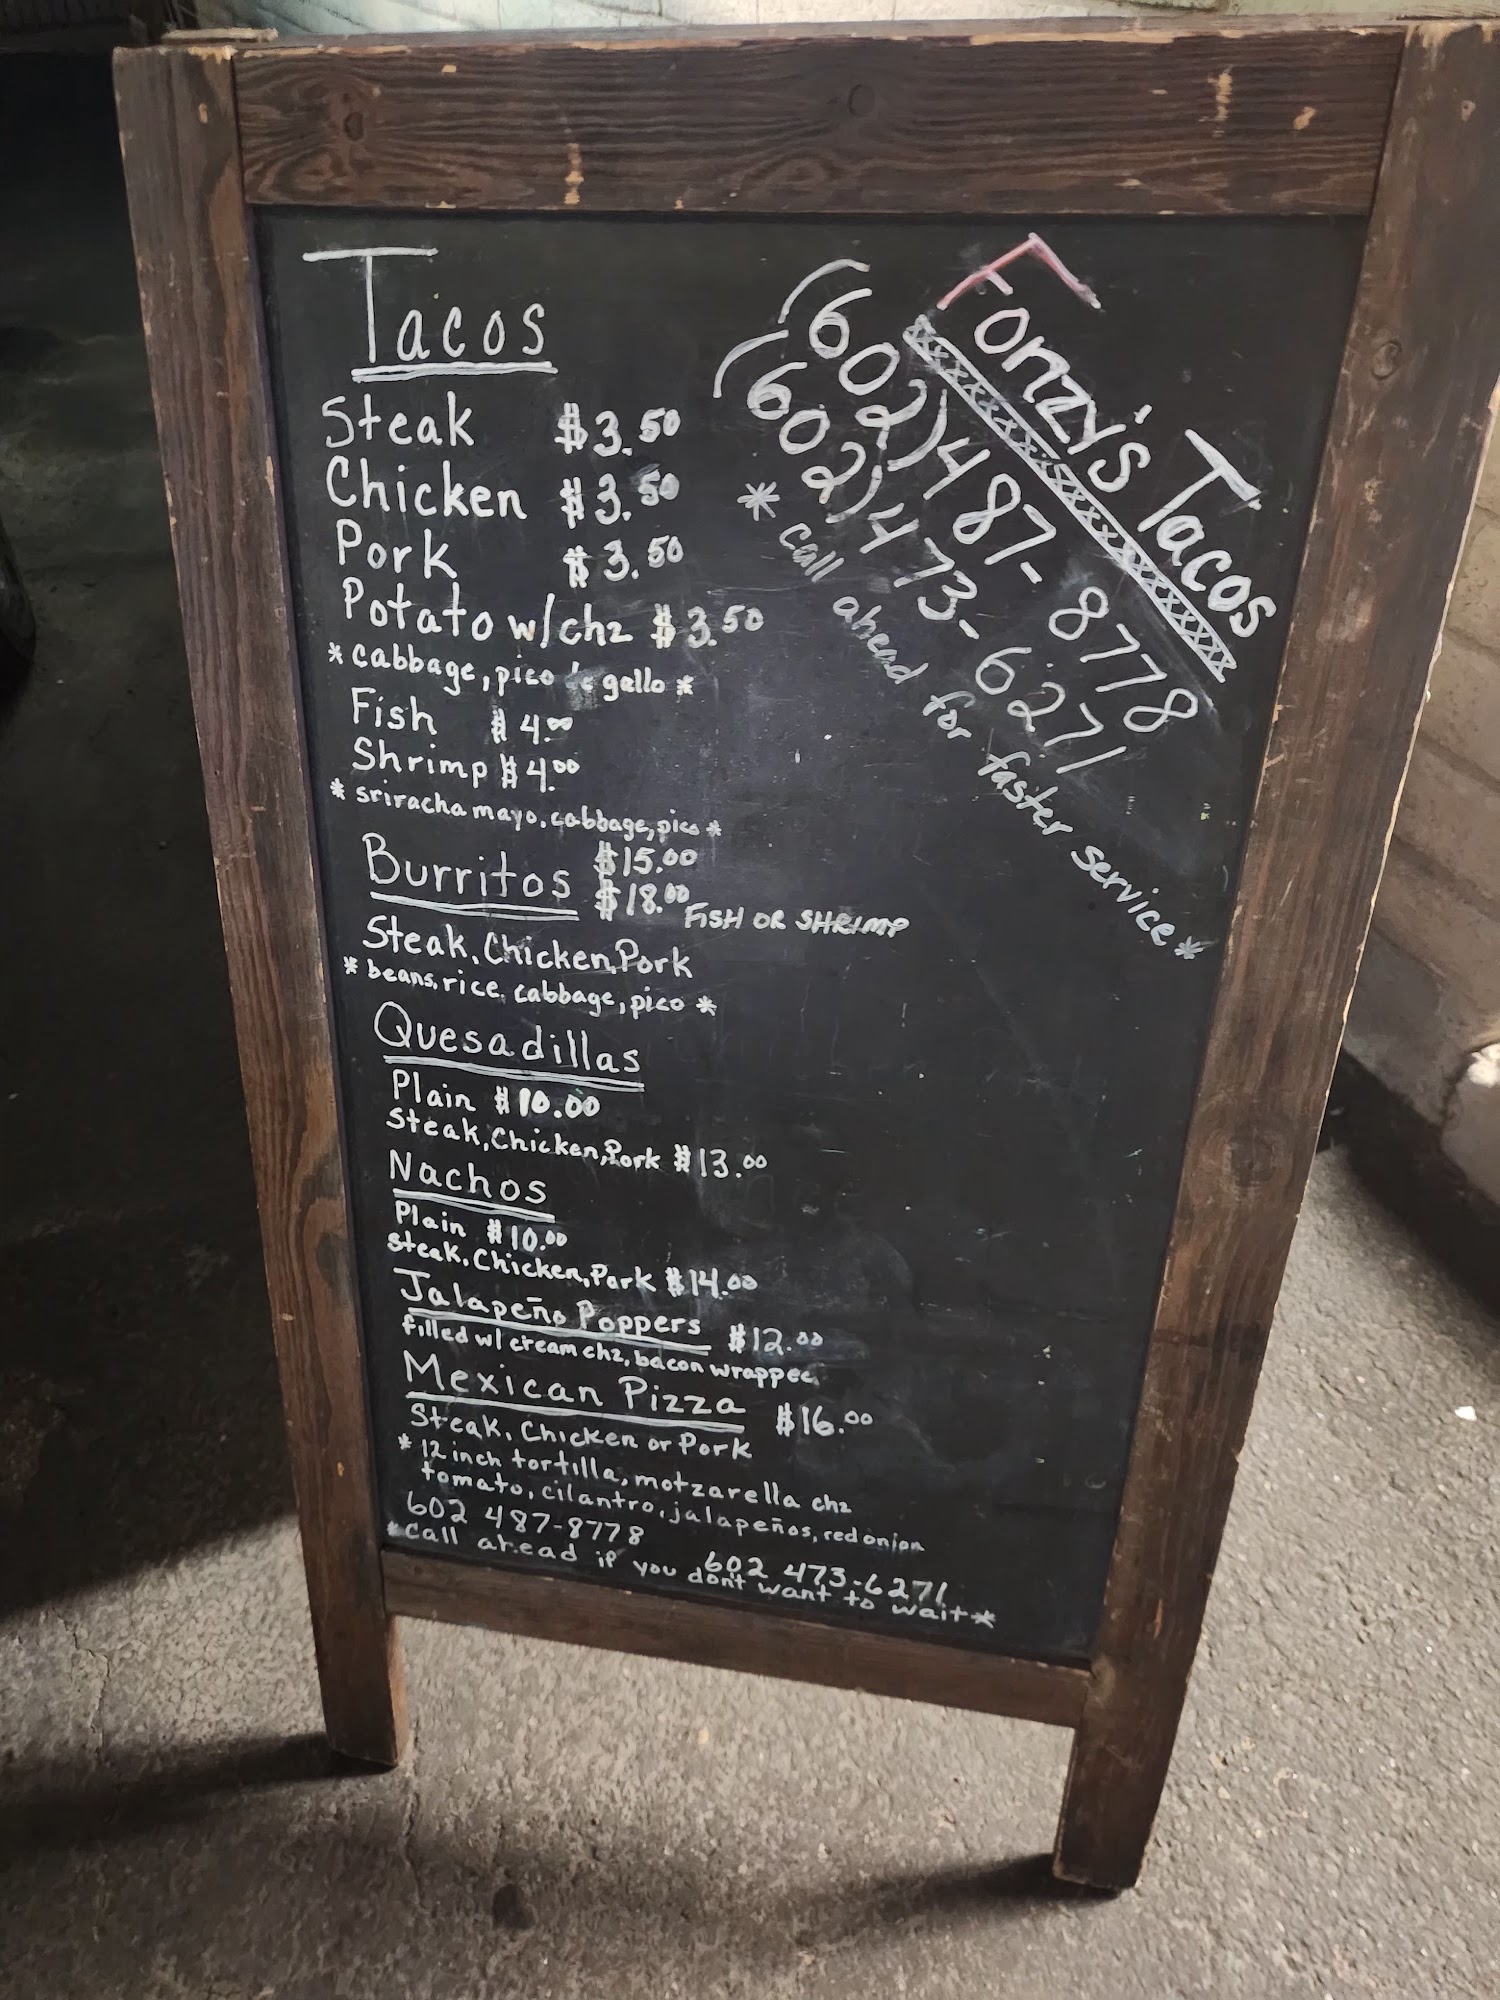 Tacos
Steak $3.50
Chicken $3.50
Pork $3.50
Potato w/chz $3.50
*cabbage, pico gallo*
Fish $4.00
Shrimp $4.00
*sriracha mayo, cabbage, pico*
Burritos $15.00
$18.00 FISH OR SHRIMP
Steak, Chicken, Pork
*beans, rice, cabbage, pico*
Quesadillas
Plain $10.00
Steak, Chicken, Pork $13.00
Nachos
Plain $10.00
Steak, Chicken, Pork $14.00
Jalapeño Poppers $12.00
filled w/ cream chz, bacon wrapped
Mexican Pizza $16.00
Steak, Chicken or Pork
*12 inch tortilla, motzarella chz
tomato, cilantro, jalapeños, red onion
602 487-8778 602 473-6271
*call ahead if you don't want to wait*
Fonzy's Tacos
(602) 487-8778
(602) 473-6271
*call ahead for faster service*